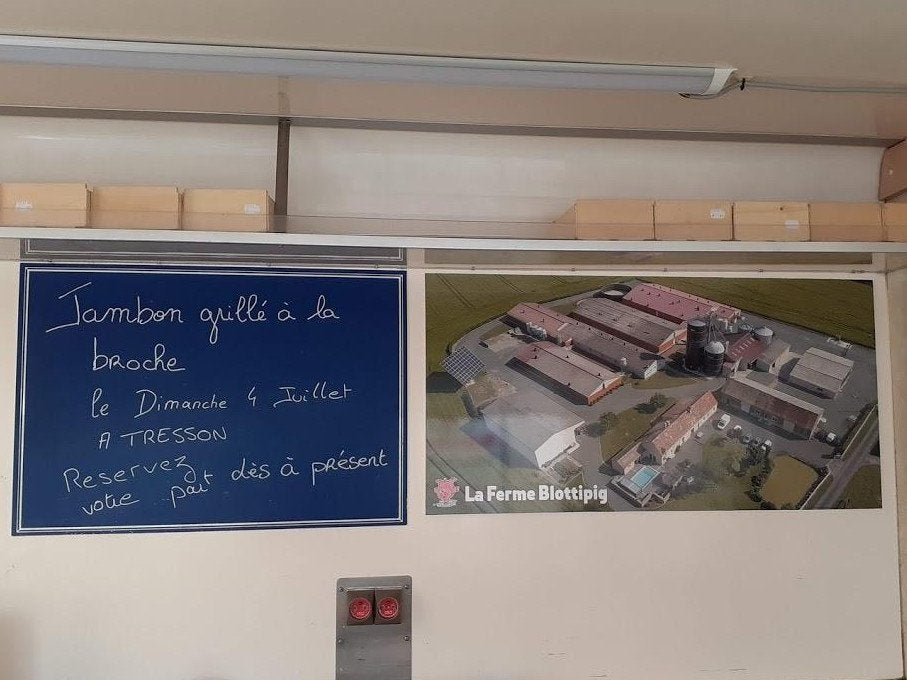 Jambon grillé à la
broche
le Dimanche 4 Juillet
A TRESSON
Reservez dès à présent
votre part
La Ferme Blottipig